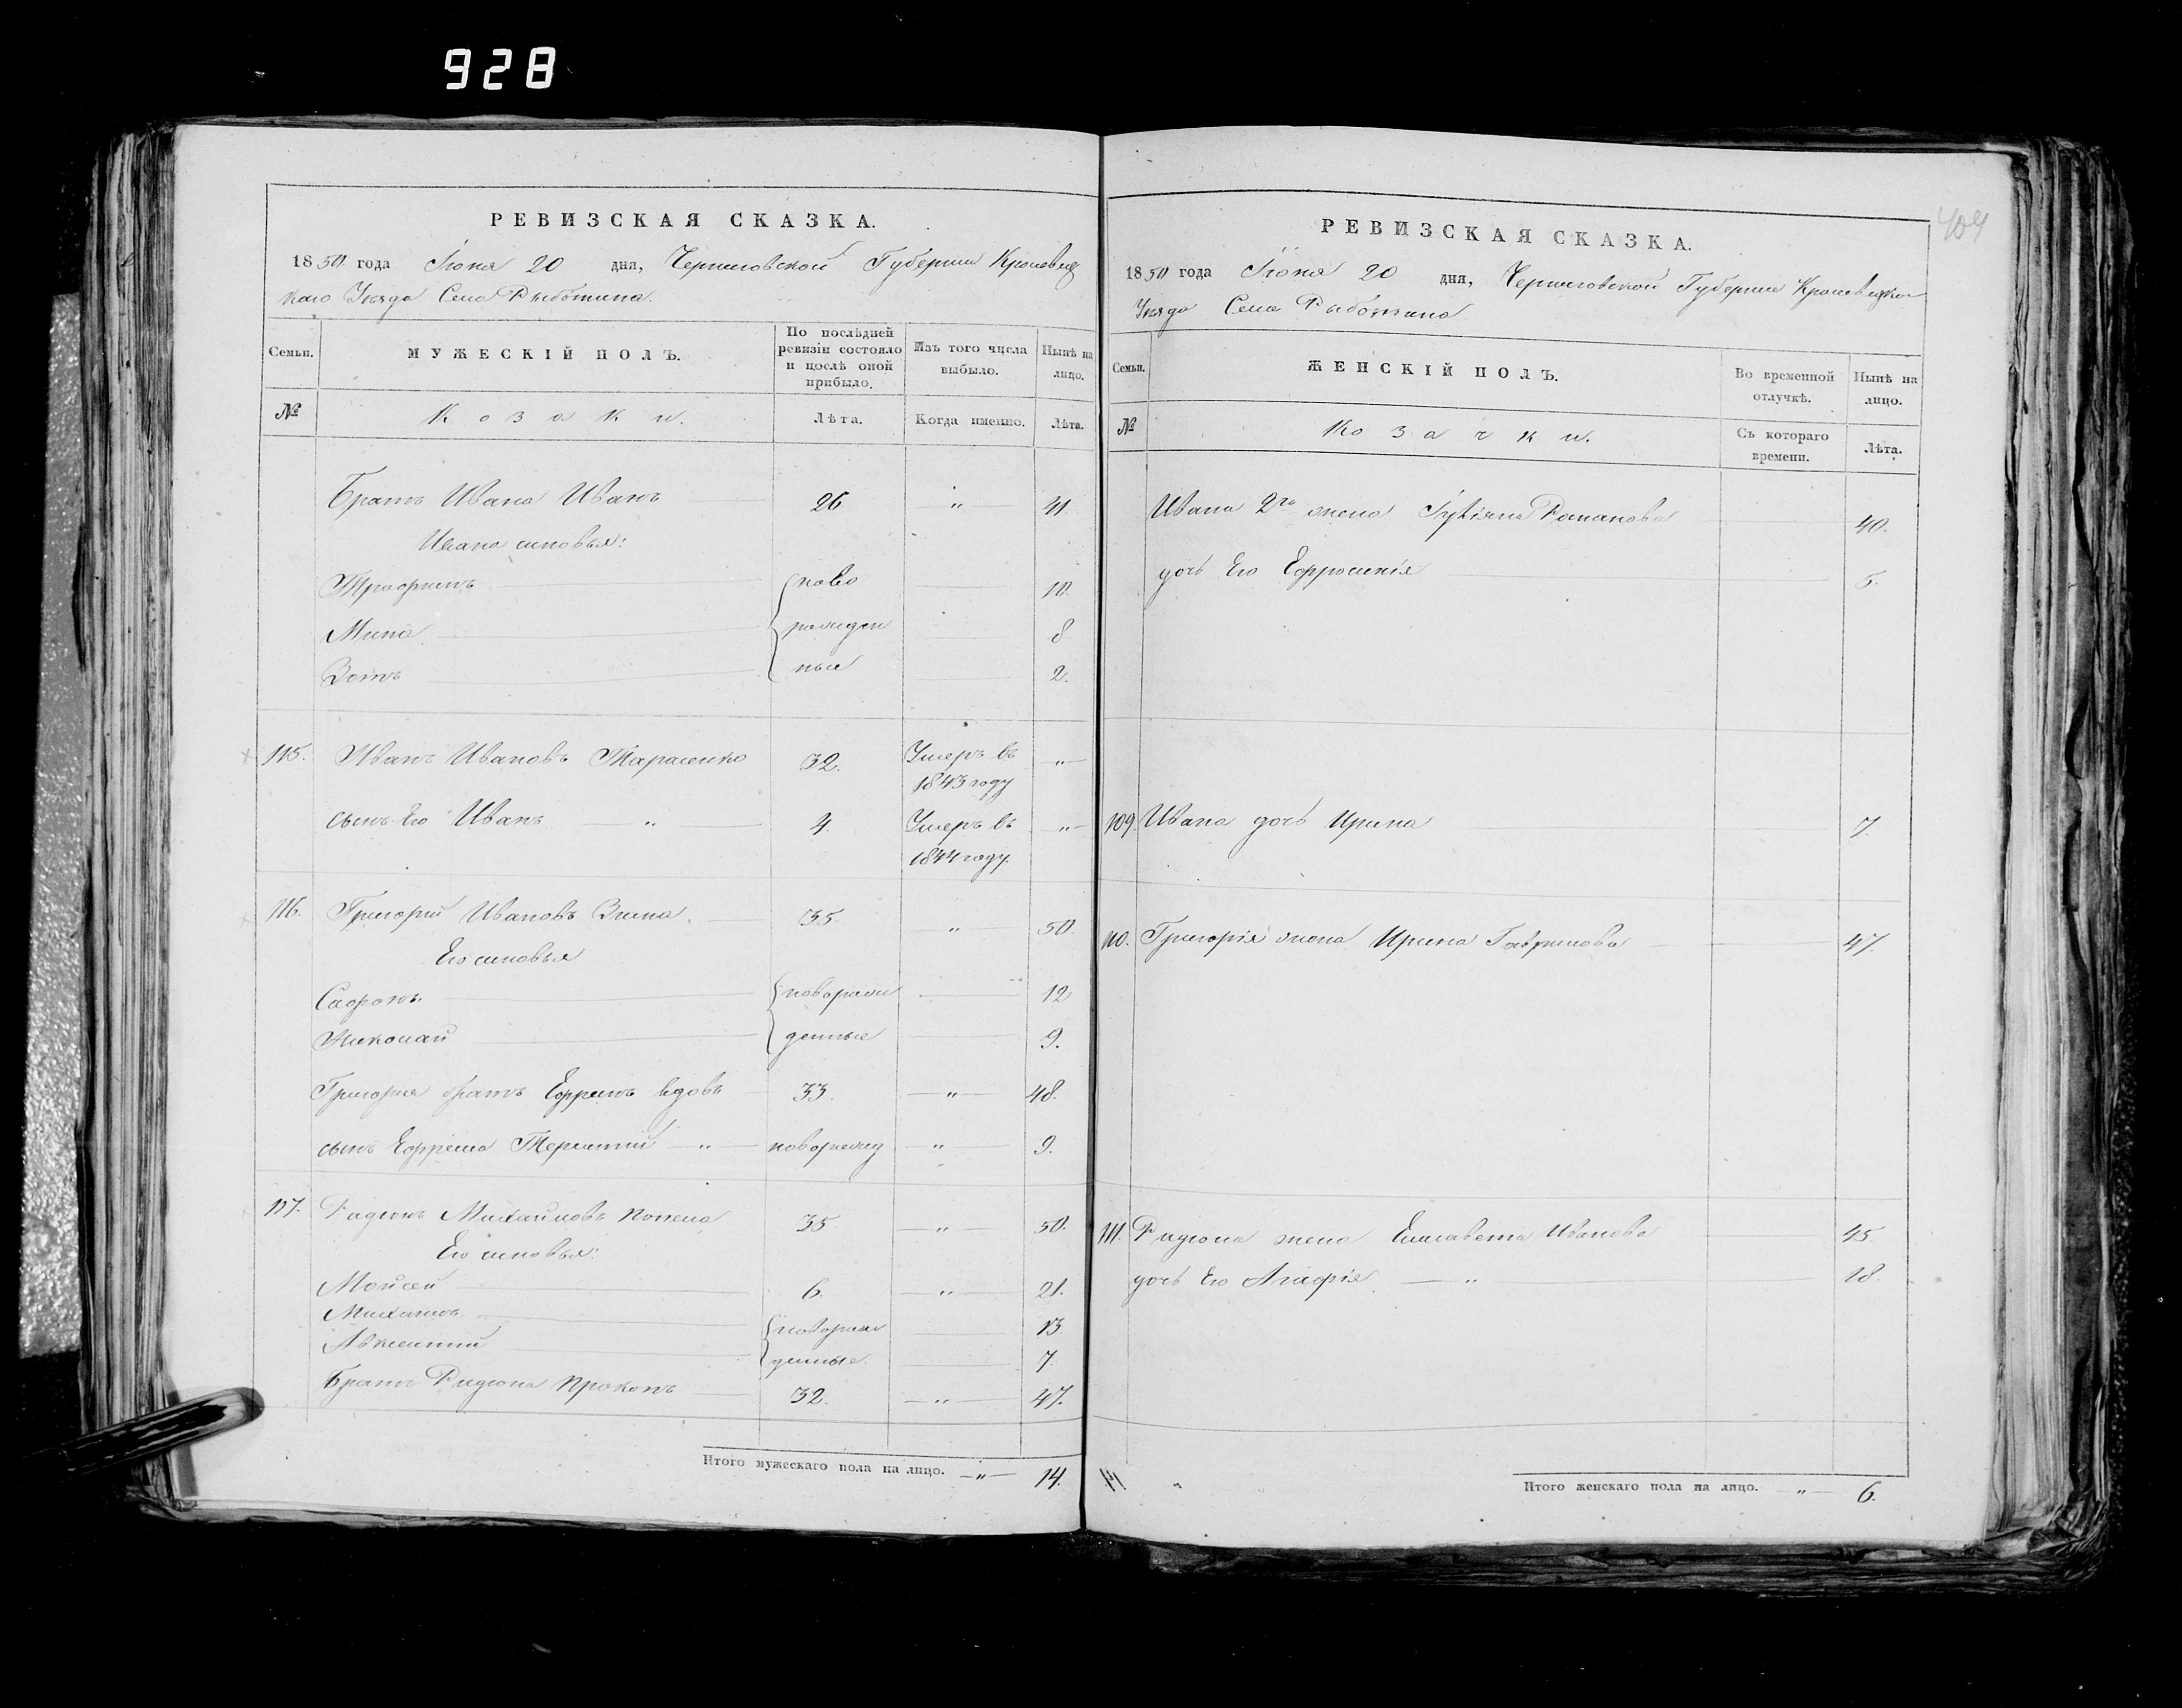 928
РЕВИЗСКАЯ СКАЗКА.
1850 года Іюня 20 дня, Черниговской Губерніи Кролевец
каго Уѣзда Села Рыботина.
Семьи.
МУЖЕСКІЙ ПОЛЪ.
По послѣдней ревизіи состояло и послѣ оной прибыло.
Изъ того числа выбыло.
Нынѣ на лицо.
№
Козаки.
Лѣта.
Когда именно.
Лѣта.
Братъ Ивана Иванъ 26 " 41
Ивана сыновья:
ново
10.
Мина рожден 8
Зотъ ные 2.
115. Иванъ Ивановъ Тарасенко 32. Умеръ въ "
1843 году
сынъ Его Иванъ " 4. Умеръ въ "
1844 году.
116. Григорій Ивановъ Зима 35. " 50.
Его сыновья
Сафронъ новорож 12
Николай денные 9.
Григорія братъ Ефремъ вдовъ 33. " 48.
сынъ Ефрема Терентій " новорожд " 9.
117. Радіонъ Михайловъ 35 " 50.
Его сыновья:
Мойсей 6. " 21.
Михаилъ новорож 13
Авксентій денные. 7.
Братъ Радіона Прокопъ 32. " 47.
Итого мужескаго пола на лицо. " 14.
404
РЕВИЗСКАЯ СКАЗКА.
1850 года Іюня 20 дня, Черниговской Губерніи Кролевецкаго
Уѣзда Села Рыботина
Семьи.
ЖЕНСКІЙ ПОЛЪ.
Во временной отлучкѣ.
Нынѣ на лицо.
№
Козачки.
Съ котораго времени.
Лѣта.
Ивана 2го жена Романова 40.
дочь Его Ефросинія 5.
109. Ивана дочь Ирина 7.
110. Григорія жена Ирина Гаврилова 47.
111. Радіона жена Елисавета Иванова 45
дочь Его Агафія " 18.
"
Итого женскаго пола на лицо. " 6.